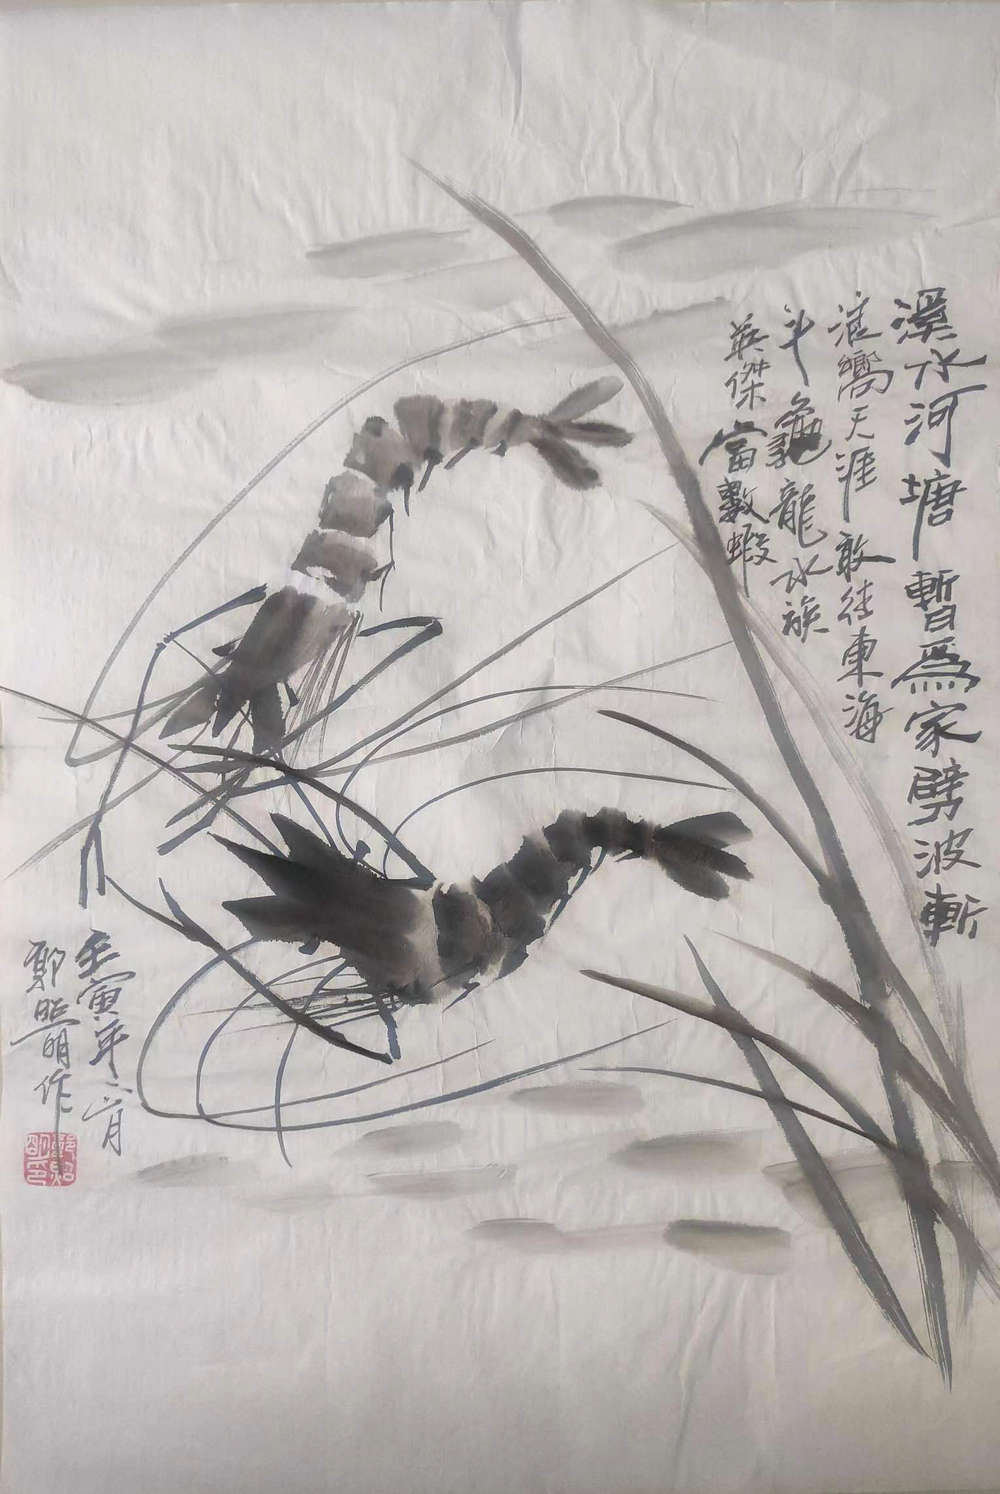 溪水河塘暫為家劈波斬
浪嚮天涯敢往東海
斗龜龍水族
英傑當數蝦
壬寅年六月
鄭照明作